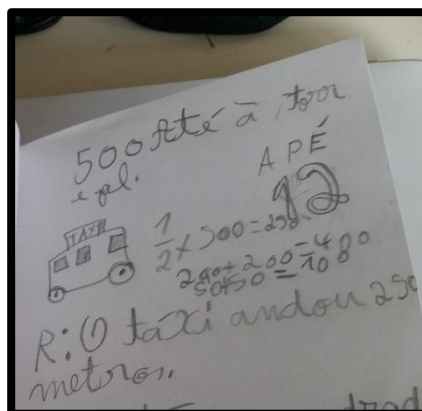 500 Até à torr
A PÉ
TAXI
1/2 x 500 = 250
12
200+200=400
50+50=100
R: O táxi andou 250
metros.